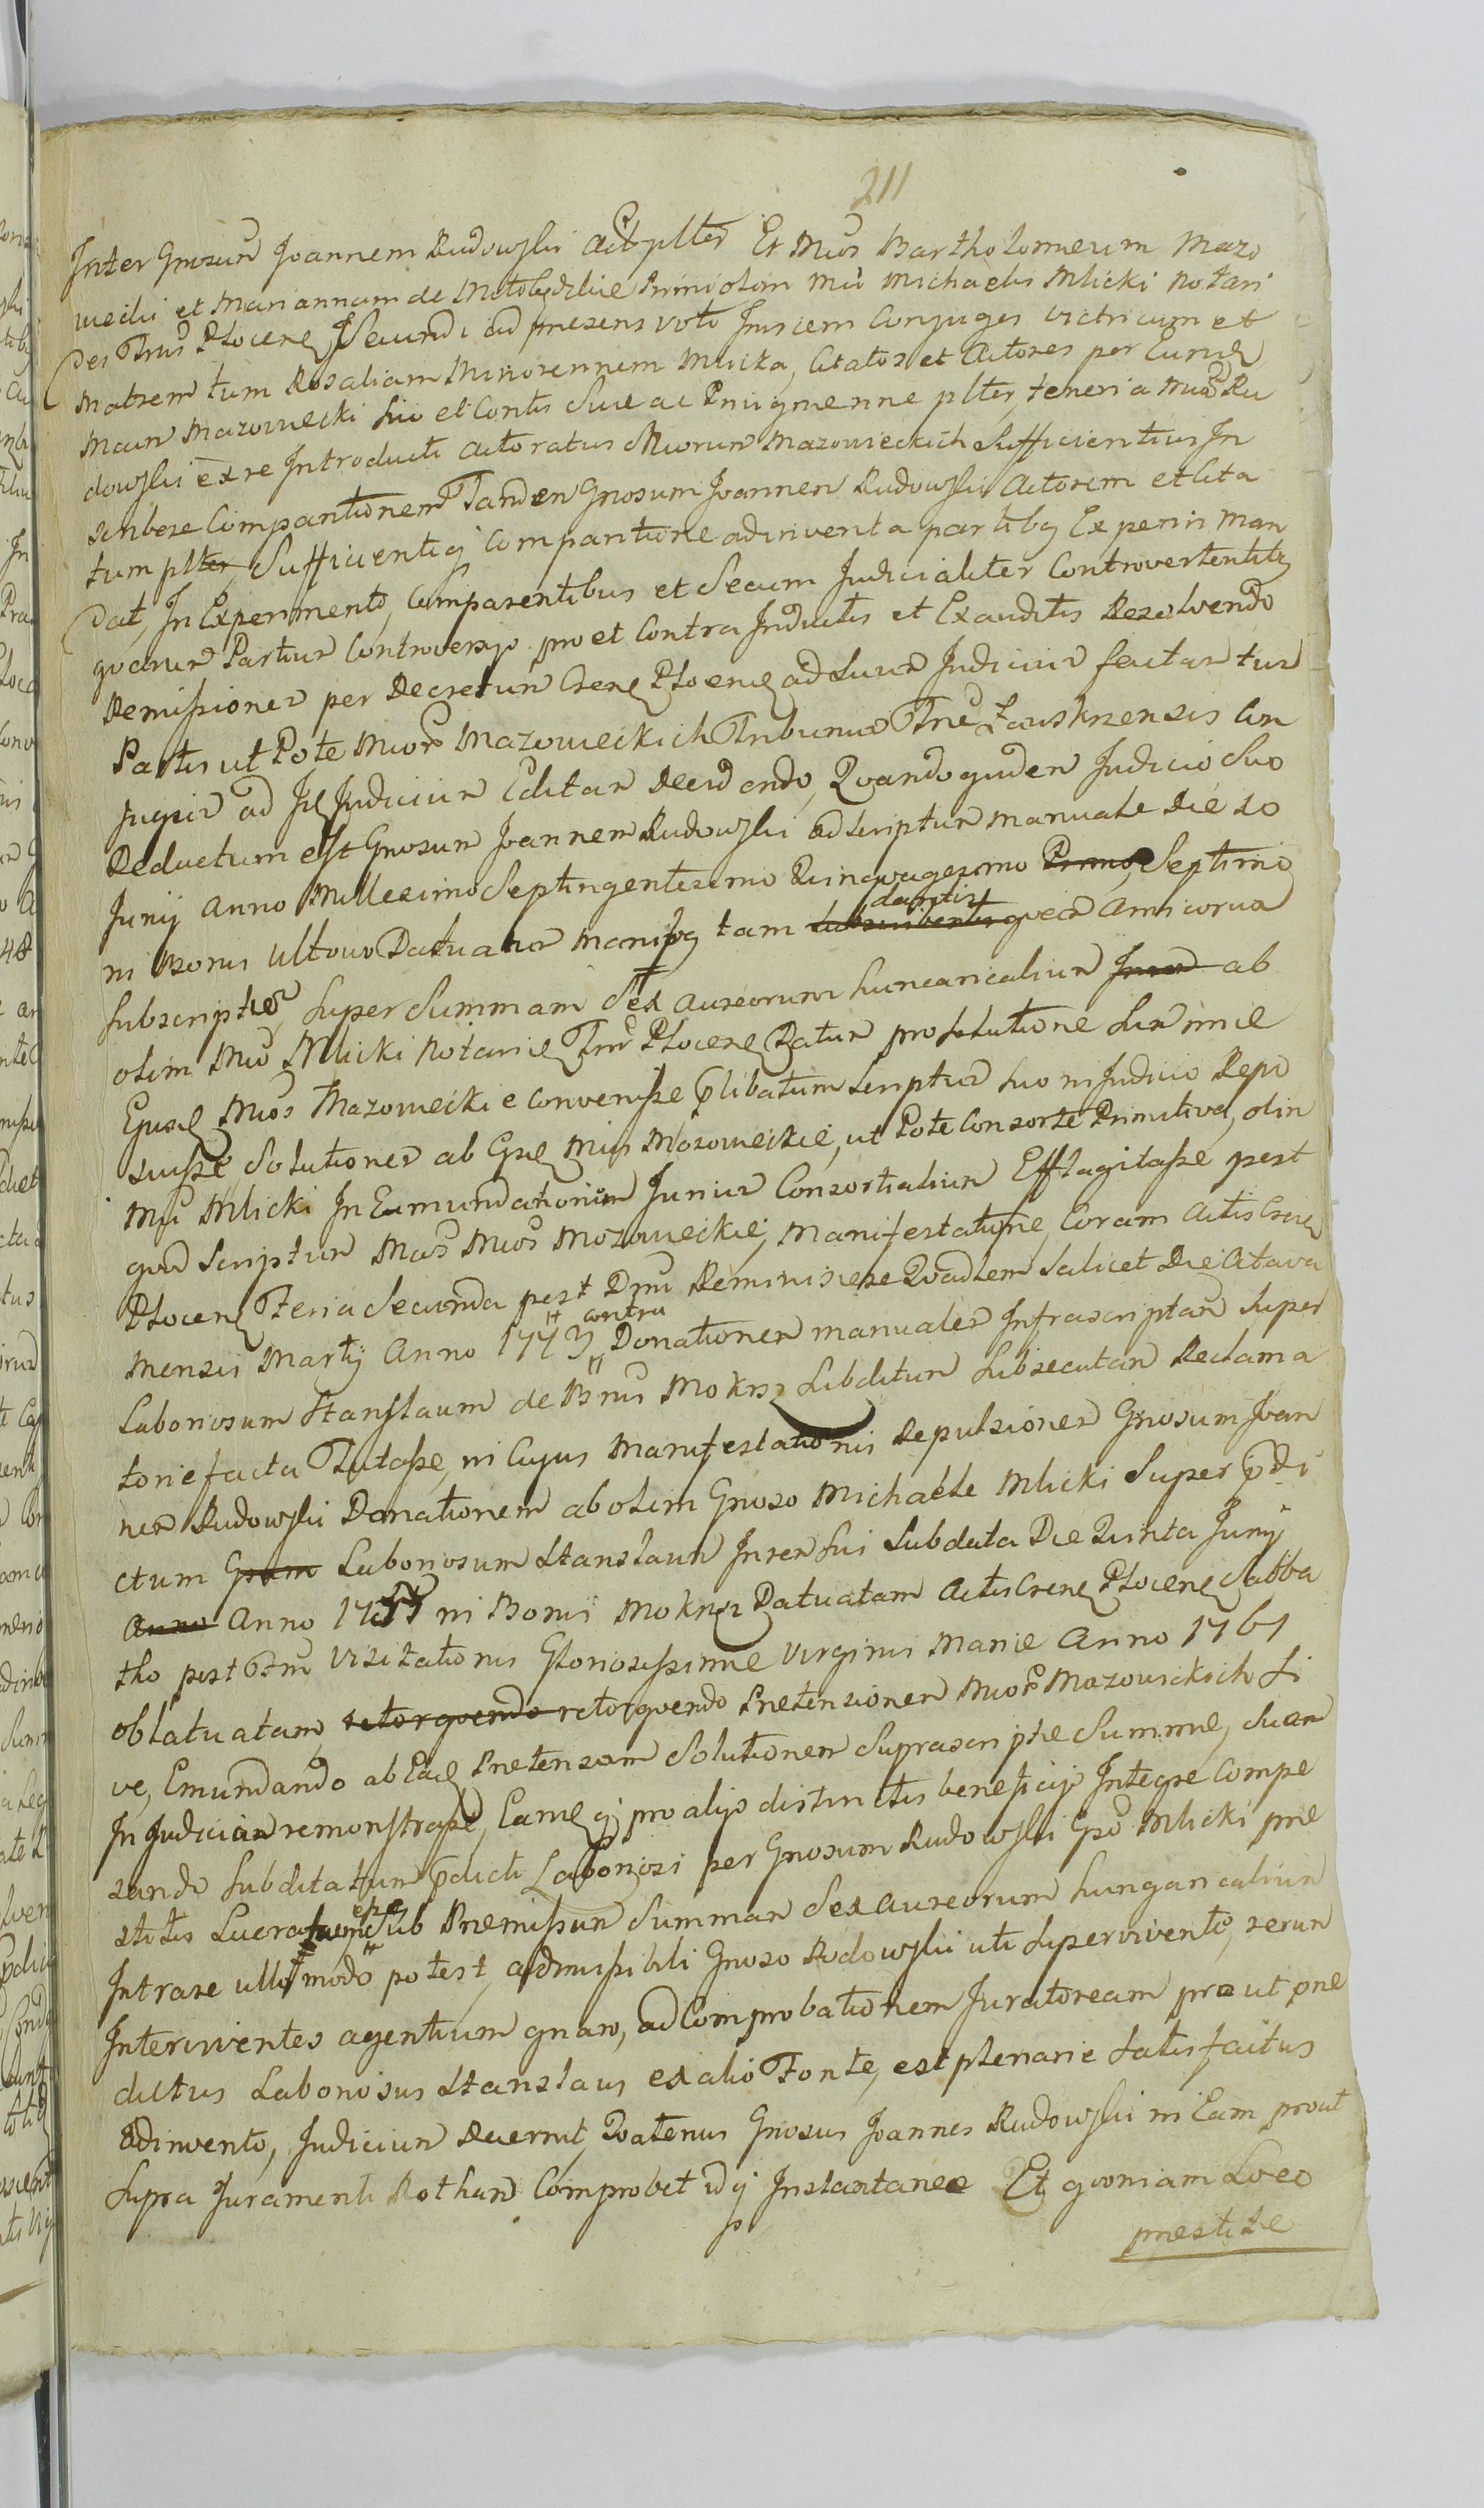 211
Inter Gnosum Joannem Rudowski act plter Et Mcos Bartholomeum Mazo
wiecki et Mariannam de Primi olim Mci Michaelis Mlicki Notarii
Tris Plocen Secundi ad presens voti Invicem Conjuges victricum et
Matrem tum Rosaliam Minorennem Mlicka, Citatos et Actores per Eund
Mcum Mazowiecki suo et Contis Sue ac Privignenne plter, teneri a Mco Ru
dowski ex re Introducti actoratus Mcorum Mazowieckich Sufficientius In
scribere Comparitionem Tandem Gnosum Joannem Rudowski Actorem et Cita
tum plter, Sufficientiq Comparitione adinventa partibq Experiri man
dat, In Experimento, Comparentibus et Secum Judicialiter Controvertentibq
quarum Partium Controversijs pro et Contra Inductis et Exauditis Resolvendo
Remissionem per Decretum Cren Plocen ad Suum Judicium factam tum
Partis ut Pote Mcor Mazowieckich Tribunor Tre Zauskrzensis Con
jugum ad Id Judicium Editam Decidendo, Quando quidem Judicio Suo
Deductum est Gnosum Joannem Rudowski ad scriptum manuale Die 20
Junij Anno Millesimo Septingentesimo Quinquagesimo Primo, Septimo
in Bonis Datuatum manibq tam subscribentis dantis quam Amicorum
Subscriptum, Super Summam Sex aureorum hungaricalium ab
olim Mco Mlicki Notario Tri Plocen Datum pro Solutione Summe
Ejusd Mcos Mazowieckie convenisse plibatum scriptum suo in Judicio Repo
suisse Solutionem ab Gsd Mcis Mazowieckie, ut Pote Consorte Primitiva, olim
Mci Mlicki In Emundationem Jurium Consortialium Efflagitasse post
quod Scriptum Mcas Mcos Mazowieckie, Manifestatione, Coram Actis Cren
Plocen Feria Secunda post Dnm Reminiscere Quadlem Salicet Die Octava
Mensis Martij Anno 1773 contra Donationem manualem Infrascriptam Super
Laboriosum Stanslaum de Bnis Mokrz Subditum Subsecutam Reclama
torie facta Tutasse, in Cujus Manifestationis Repulsionem Gnosum Joan
nem Rudowski Donationem ab olim Gnoso Michaele Mlicki Super pdi
ctum Gsum Laboriosum Stanslaum In rem Sui Subdata Die Quinta Junij
Anno Anno 1757 in Bonis Mokrz Datuatam Actis Cren Plocen Sabba
tho post Ftum Visitationis Gloriosissime Virginis Marie Anno 1761
oblatuatam, retorquendo retorquendo Pretensionem Mcor Mazowieckich Si
ve, Emundando ab Ead Pretensam Solutionem Suprascripte Summe, Suam
In Judicium remonstrasse, Eamq pro alijs distinctis beneficijs Integre Compe
sando Subditatum pdicti Laboriosi per Gnosum Rudowski Gso Mlicki pre
stitis Lucratum esse Sub Premissam Summam Sex aureorum hungaricalium
Intrare ullo modo potest, admissibili Gnoso Rudowski uti Superviventi, rerum
Interviventes agentium gnaro, ad Comprobationem Juratoream prout pre
dictus Laboriosus Stanslaus ex alio Fonte, est plenarie Satisfactus
Adinvento, Judicium Decernit Quatenus Gnosus Joannes Rudowski in Eam prout
Supra Juramenti Rotham Comprobet idq Instantanee Et quoniam Loco
prestite